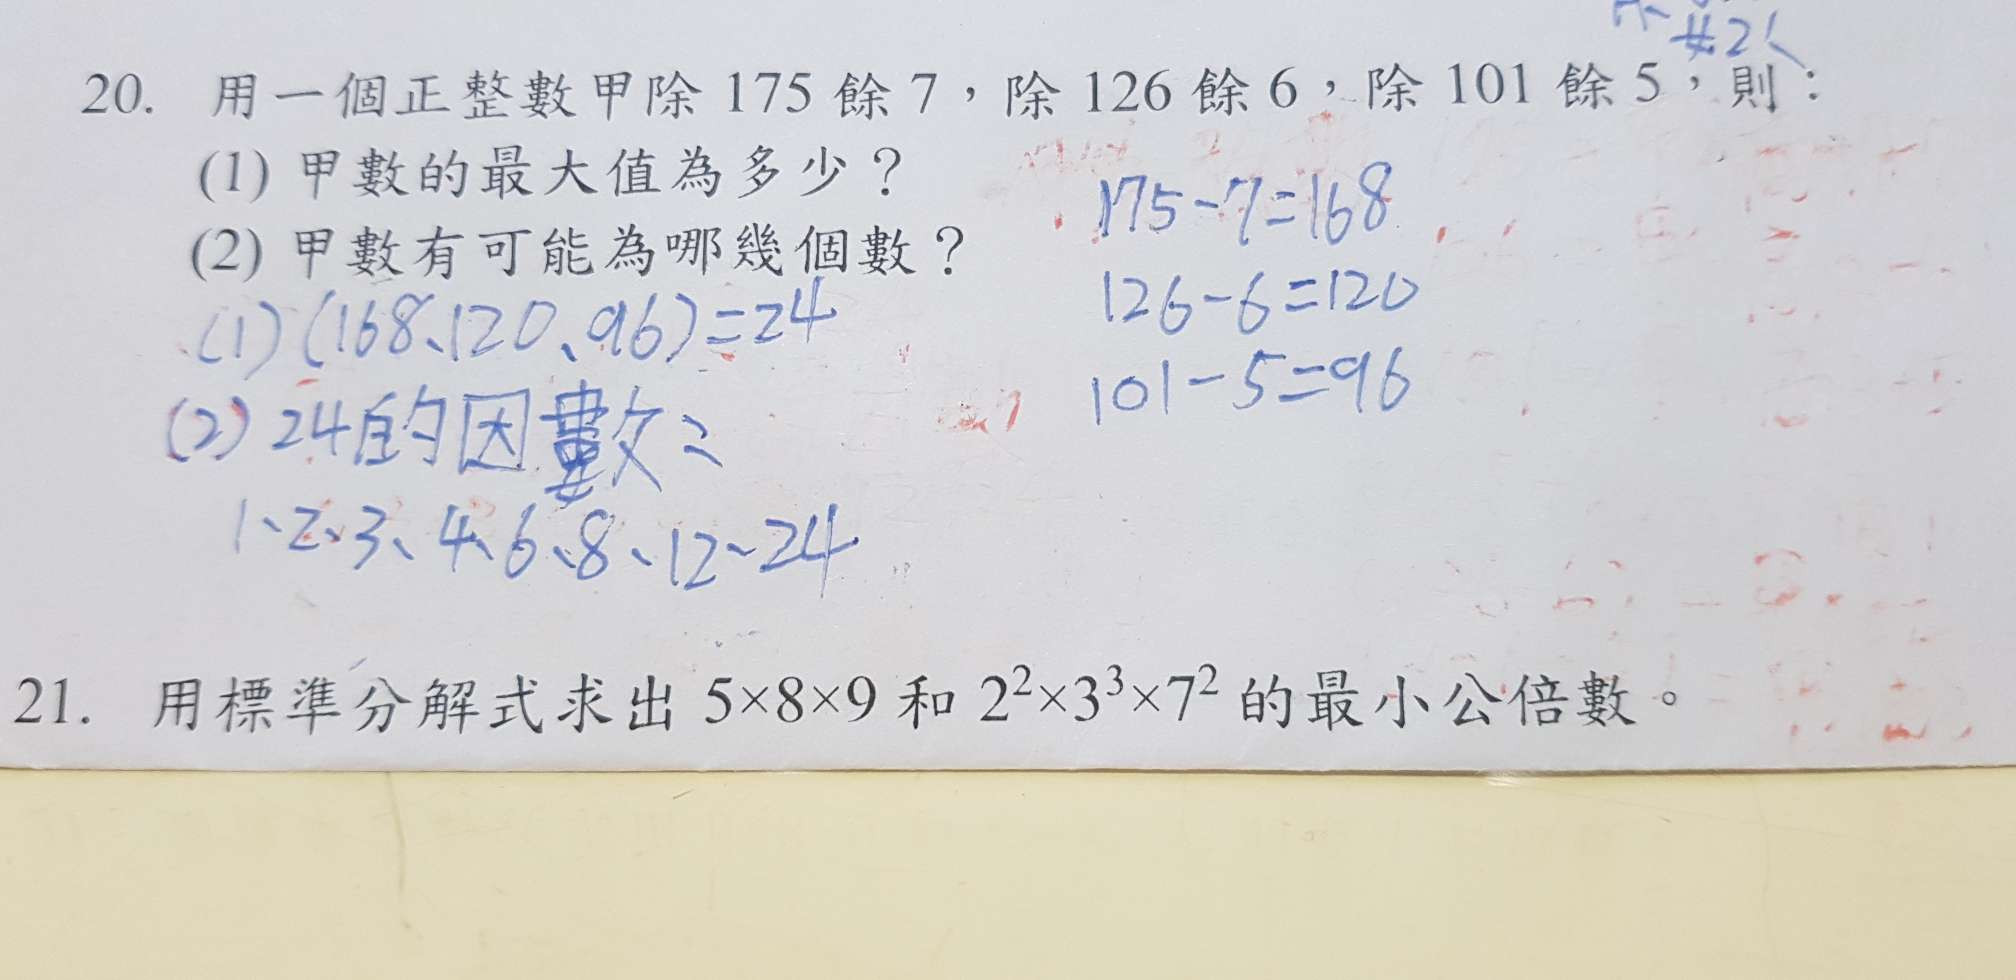 共2人
20. 用一個正整數甲除 175 餘 7，除 126 餘 6，除 101 餘 5，則：
(1) 甲數的最大值為多少？
175-7=168
(2) 甲數有可能為哪幾個數？
126-6=120
(1)(168、120、96)=24
101-5=96
(2) 24的因數：
1、2、3、4、6、8、12、24
21. 用標準分解式求出 5×8×9 和 2²×3³×7² 的最小公倍數。